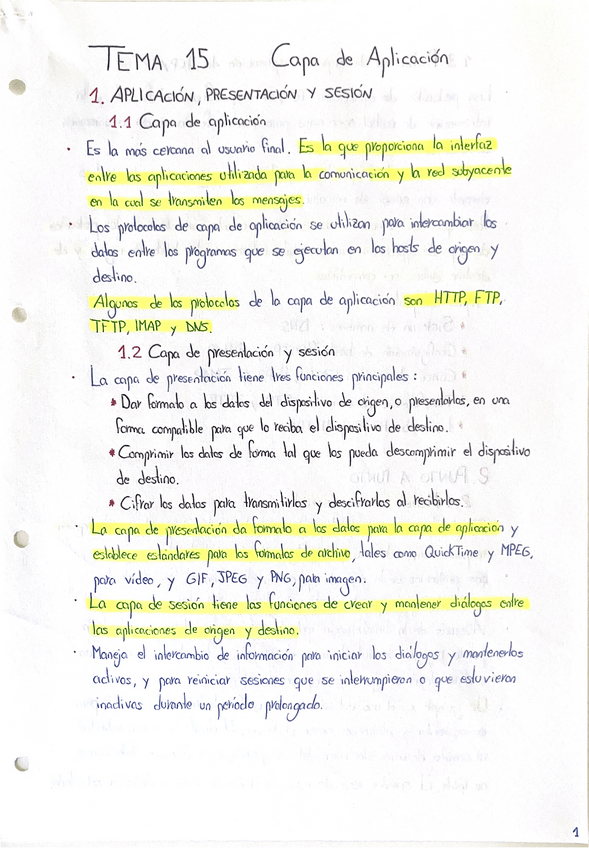 TEMA 15 Capa de Aplicación
1. APLICACIÓN, PRESENTACIÓN Y SESIÓN
1.1 Capa de aplicación
· Es la más cercana al usuario final. Es la que proporciona la interfaz
entre las aplicaciones utilizada para la comunicación y la red subyacente
en la cual se transmiten los mensajes.
· Los protocolos de capa de aplicación se utilizan para intercambiar los
datos entre los programas que se ejecutan en los hosts de origen y
destino.
Algunos de los protocolos de la capa de aplicación son HTTP, FTP,
TFTP, IMAP y DNS.
1.2 Capa de presentación y sesión
· La capa de presentación tiene tres funciones principales:
* Dar formato a los datos del dispositivo de origen, o presentarlos, en una
forma compatible para que lo reciba el dispositivo de destino.
* Comprimir los datos de forma tal que los pueda descomprimir el dispositivo
de destino.
* Cifrar los datos para transmitirlos y descifrarlos al recibirlos.
· La capa de presentación da formato a los datos para la capa de aplicación y
establece estándares para los formatos de archivo, tales como QuickTime y MPEG,
para vídeo, y GIF, JPEG y PNG, para imagen.
· La capa de sesión tiene las funciones de crear y mantener diálogos entre
las aplicaciones de origen y destino.
· Maneja el intercambio de información para iniciar los diálogos y mantenerlos
activos, y para reiniciar sesiones que se interrumpieron o que estuvieron
inactivas durante un período prolongado.
1